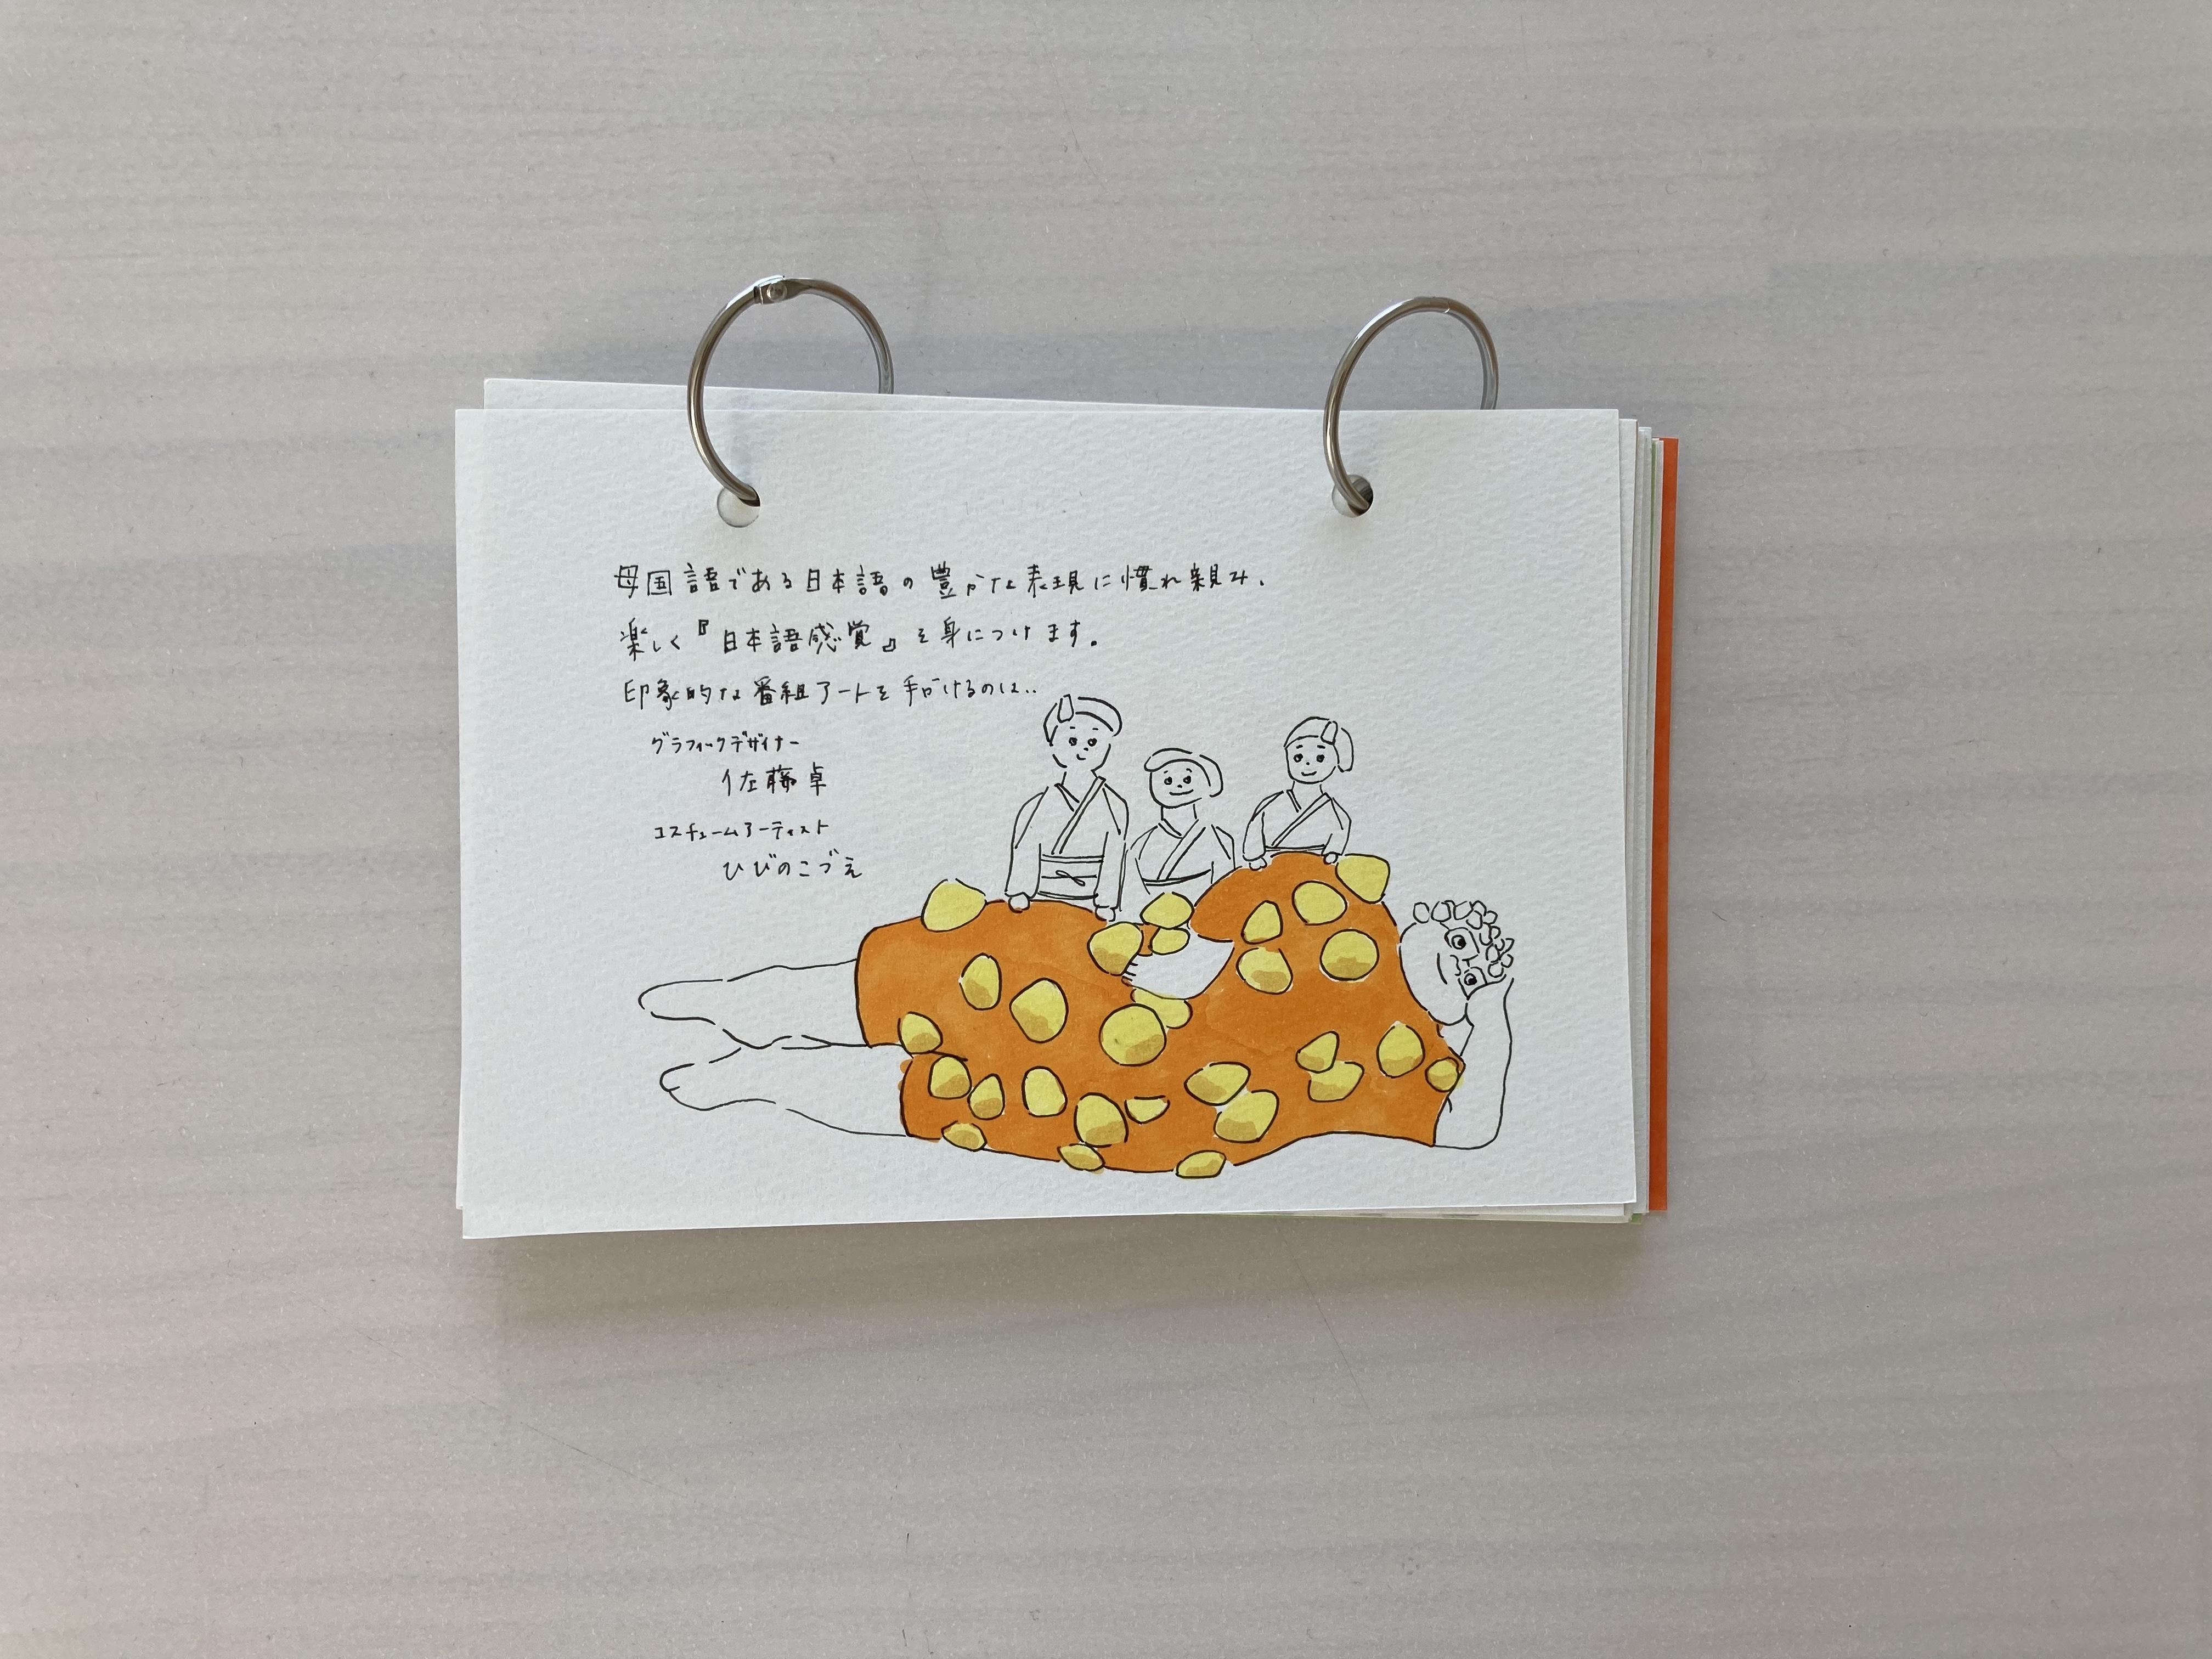 母国語である日本語の豊かな表現に慣れ親み、
楽しく『日本語感覚』を身につけます。
印象的な番組アートを手がけるのは..
グラフィックデザイナー
佐藤卓
コスチュームアーティスト
ひびのこづえ